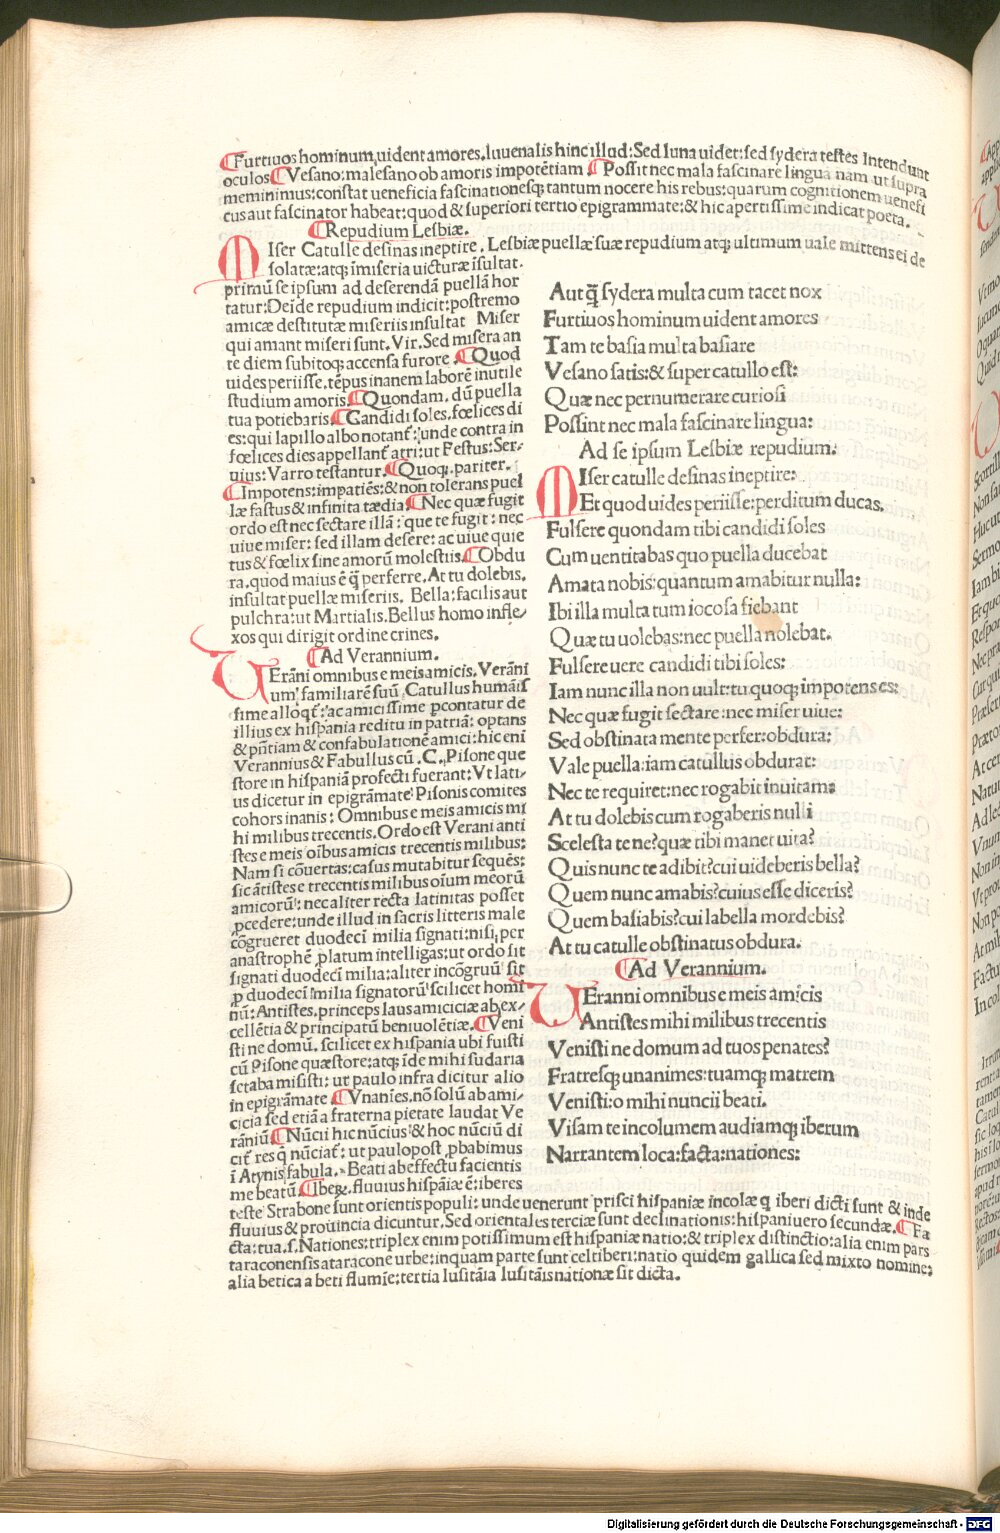 ¶Furtiuos hominum uident amores. Iuuenalis hinc illud: Sed luna uidet: sed sydera testes Intendunt
oculos ¶Vesano: malesano ob amoris impotētiam ¶Possit nec mala fascinare lingua nam ut supra
meminimus: constat ueneficia fascinationesq; tantum nocere his rebus: quarum cognitionem uenefi
cus aut fascinator habeat: quod & superiori tertio epigrammate: & hic apertissime indicat poeta.
¶Repudium Lesbiæ.
MIser Catulle desinas ineptire. Lesbiæ puellæ suæ repudium atq; ultimum uale mittens ei de
solatæ: atq; ī miseria uicturæ īsultat.
primū se ipsum ad deserendā puellā hor
tatur: Deīde repudium indicit: postremo
amicæ destitutæ miseriis insultat Miser
qui amant miseri sunt. Vir. Sed misera an
te diem subitoq; accensa furore. ¶Quod
uides periisse. tēpus inanem laborē inutile
studium amoris. ¶Quondam. dū puella
tua potiebaris. ¶Candidi soles. fœlices di
es: qui lapillo albo notant̄: unde contra in
fœlices dies appellant̄ atri: ut Festus: Ser-
uius: Varro testantur. ¶Quoq;. pariter.
¶Impotens: impatiēs: & non tolerans puel
læ fastus & infinita tædia. ¶Nec quæ fugit
ordo est nec sectare illā: que te fugit: nec
uiue miser: sed illam desere: ac uiue quie
tus & fœlix sine amorū molestiis. ¶Obdu
ra. quod maius ē q̄ perferre. At tu dolebis.
insultat puellæ miseriis. Bella: facilis aut
pulchra: ut Martialis. Bellus homo infle/
xos qui dirigit ordine crines.
¶Ad Verannium.
VErāni omnibus e meis amicis. Verāni
um: familiarē suū Catullus humāis
sime alloq̄t̄: ac amicissime pcontatur de
illius ex hispania reditu in patriā: optans
& pn̄tiam & confabulationē amici: hic eni
Verannius & Fabullus cū. C. Pisone que
store in hispaniā profecti fuerant: Vt lati-
us dicetur in epigrāmate Pisonis comites
cohors inanis: Omnibus e meis amicis mi
hi milibus trecentis. Ordo est Verani anti
stes e meis oībus amicis trecentis milibus:
Nam si cōuertas: casus mutabitur sequēs:
sic ātistes e trecentis milibus oīum meorū
amicorū: nec aliter recta latinitas posset
pcedere: unde illud in sacris litteris male
cōgrueret duodecī milia signati: nisi per
anastrophē platum intelligas: ut ordo sit
signati duodecī milia: aliter incōgruū sit
p duodecī milia signatorū scilicet homi
nū: Antistes. princeps laus amiciciæ ab ex/
cellētia & principatū beniuolētiæ. ¶Veni
sti ne domū. scilicet ex hispania ubi fuisti
cū Pisone quæstore: atq; īde mihi sudaria
setaba misisti: ut paulo infra dicitur alio
in epigrāmate ¶Vnanīes. nō solū ab ami/
cicia sed etiā a fraterna pietate laudat Ve
rāniū ¶Nūcii hic nūcius & hoc nūciū di
cit̄ res q̄ nūciat̄: ut paulo post pbabimus
ī Atynis fabula. Beati ab effectu facientis
me beatū ¶Iberꝝ. fluuius hispāiæ ē: iberes
teste Strabone sunt orientis populi: unde uenerunt prisci hispaniæ incolæ q iberi dicti sunt & inde
fluuius & prouincia dicuntur. Sed orientales terciæ sunt declinationis: hispani uero secundæ. ¶Fa
cta: tua. s. Nationes: triplex enim potissimum est hispaniæ natio: & triplex distinctio: alia enim pars
taraconensis a taracone urbe: inquam parte sunt celtiberi: natio quidem gallica sed mixto nomine:
alia betica a beti flumīe: tertia lusitāia lusitāis nationæ sit dicta.
Aut q̄ sydera multa cum tacet nox
Furtiuos hominum uident amores
Tam te basia multa basiare
Vesano satis: & super catullo est:
Quæ nec pernumerare curiosi
Possint nec mala fascinare lingua:
Ad se ipsum Lesbiæ repudium.
MIser catulle desinas ineptire:
Et quod uides periisse: perditum ducas.
Fulsere quondam tibi candidi soles
Cum uentitabas quo puella ducebat
Amata nobis: quantum amabitur nulla:
Ibi illa multa tum iocosa fiebant
Quæ tu uolebas: nec puella nolebat.
Fulsere uere candidi tibi soles:
Iam nunc illa non uult: tu quoq; impotens es:
Nec quæ fugit sectare: nec miser uiue:
Sed obstinata mente perfer: obdura:
Vale puella: iam catullus obdurat:
Nec te requiret: nec rogabit inuitam:
At tu dolebis cum rogaberis nulli
Scelesta te ne? quæ tibi manet uita?
Quis nunc te adibit? cui uideberis bella?
Quem nunc amabis? cuius esse diceris?
Quem basiabis? cui labella mordebis?
At tu catulle obstinatus obdura.
¶Ad Verannium.
VEranni omnibus e meis amicis
Antistes mihi milibus trecentis
Venisti ne domum ad tuos penates?
Fratresq; unanimes: tuamq; matrem
Venisti: o mihi nuncii beati.
Visam te incolumem audiamq; iberum
Narrantem loca: facta: nationes:
Digitalisierung gefördert durch die Deutsche Forschungsgemeinschaft - DFG